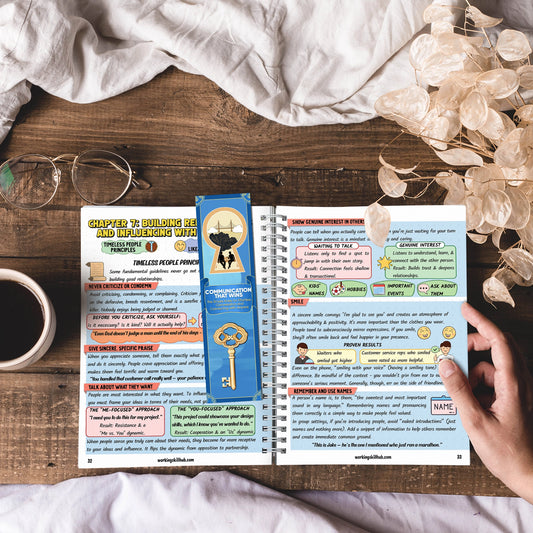 CHAPTER 7: BUILDING RE
AND INFLUENCING WITH
TIMELESS PEOPLE
PRINCIPLES
LIKE
TIMELESS PEOPLE PRIN
Some fundamental guidelines never go
building good relationships.
NEVER CRITICIZE OR CONDEMN
Avoid criticizing, condemning, or complaining. Criticism p
on the defensive, breeds resentment, and is a
killer. Nobody enjoys being judged or shamed.
BEFORE YOU CRITICIZE, ASK YOURSELF:
Is it necessary? Is it kind? Will it actually help
"Even God doesn't judge a man until the end of his days."
GIVE SINCERE, SPECIFIC PRAISE
When you appreciate someone, tell them exactly what
and do it sincerely. People crave appreciation and offering
makes them feel worthy and warm toward you.
"You handled that customer call really well – your patience
TALK ABOUT WHAT THEY WANT
People are interested in what they want. To influence
you must frame your ideas in terms of their wants, not you
THE "ME-FOCUSED" APPROACH
"I need you to do this for my project."
Result: Resistance & a
"Me vs. You" dynamic.
THE "YOU-FOCUSED" APPROACH
"This project could showcase your design
skills, which I know you've wanted to do."
Result: Cooperation & an "Us" dynamic.
When people sense you truly care about their needs, they become far more receptive
to your ideas and influence. It flips the dynamic from opposition to partnership.
32
workingskillhub.com
COMMUNICATION
THAT WINS
SHOW GENUINE INTEREST IN OTHERS
People can tell when you actually care
you're just waiting for your turn
to talk. Genuine interest is a mindset
and caring.
WAITING TO TALK
Listens only to find a spot to
jump in with their own story.
Result: Connection feels shallow
& transactional.
GENUINE INTEREST
Listens to understand, learn, &
connect with the other person.
Result: Builds trust & deepens
relationships.
KIDS'
NAMES
HOBBIES
IMPORTANT
EVENTS
ASK ABOUT
THEM
SMILE
A sincere smile conveys "I'm glad to see you" and creates an atmosphere of
approachability & positivity. It's more important than the clothes you wear.
People tend to subconsciously mirror expressions. If you smile,
they'll often smile back and feel happier in your presence.
PROVEN RESULTS
Waiters who
smiled got higher
Customer service reps who smiled
were rated as more
Even on the phone, "smiling with your voice" (having a smiling tone)
difference. Be mindful of the context – you wouldn't grin from ear to
someone's serious moment. Generally, though, err on the side of friendliness
REMEMBER AND USE NAMES
A person's name is, to them, "the sweetest and most important
sound in any language." Remembering names and pronouncing
them correctly is a simple way to make people feel valued.
NAME
In group settings, if you're introducing people, avoid "naked introductions" (just
names and nothing more). Add a snippet of information to help others remember
and create immediate common ground.
"This is Jake – he's the one I mentioned who just ran a marathon."
workingskillhub.com
33